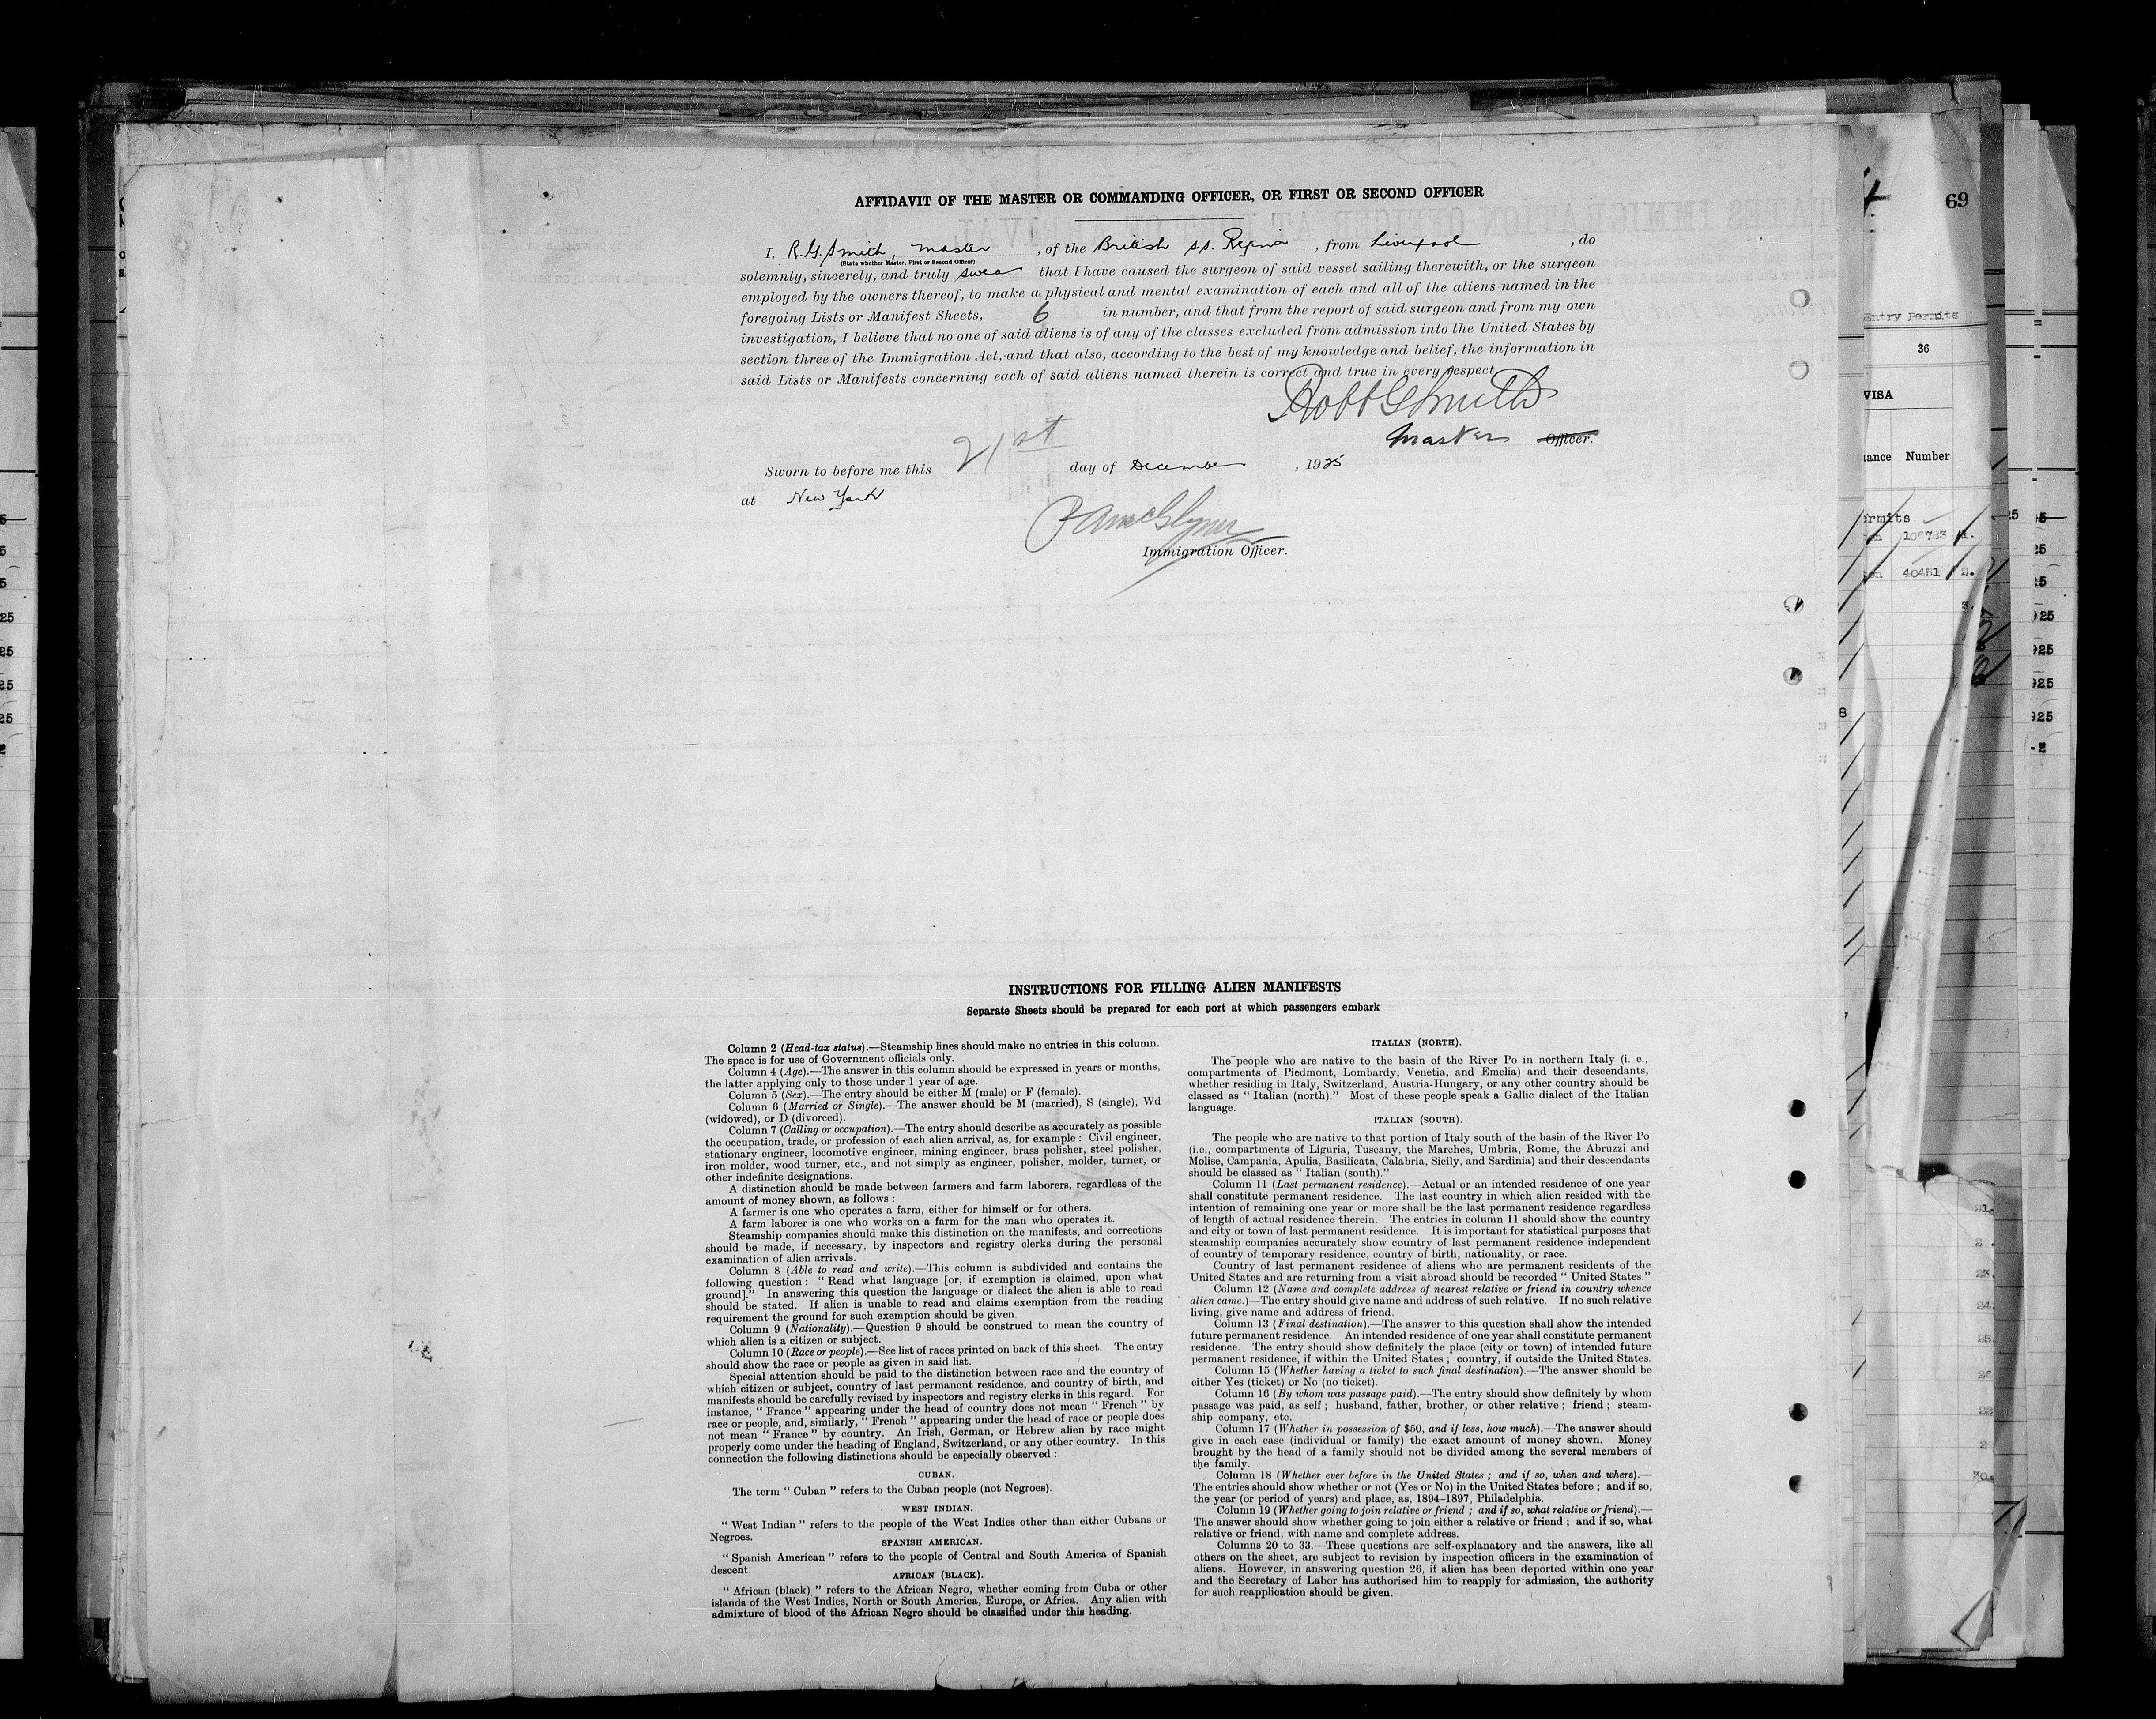 AFFIDAVIT OF THE MASTER OR COMMANDING OFFICER, OR FIRST OR SECOND OFFICER
I, R.G. Smith, master , of the British ss. Regina , from Liverpool , do
(State whether Master, First or Second Officer)
solemnly, sincerely, and truly swear that I have caused the surgeon of said vessel sailing therewith, or the surgeon
employed by the owners thereof, to make a physical and mental examination of each and all of the aliens named in the
foregoing Lists or Manifest Sheets, 6 in number, and that from the report of said surgeon and from my own
investigation, I believe that no one of said aliens is of any of the classes excluded from admission into the United States by
section three of the Immigration Act, and that also, according to the best of my knowledge and belief, the information in
said Lists or Manifests concerning each of said aliens named therein is correct and true in every respect
Robt G Smith
Master Officer.
Sworn to before me this 21st day of December , 1925
at New York
Immigration Officer.
INSTRUCTIONS FOR FILLING ALIEN MANIFESTS
Separate Sheets should be prepared for each port at which passengers embark
Column 2 (Head-tax status).—Steamship lines should make no entries in this column.
The space is for use of Government officials only.
Column 4 (Age).—The answer in this column should be expressed in years or months,
the latter applying only to those under 1 year of age.
Column 5 (Sex).—The entry should be either M (male) or F (female).
Column 6 (Married or Single).—The answer should be M (married), S (single), Wd
(widowed), or D (divorced).
Column 7 (Calling or occupation).—The entry should describe as accurately as possible
the occupation, trade, or profession of each alien arrival, as, for example : Civil engineer,
stationary engineer, locomotive engineer, mining engineer, brass polisher, steel polisher,
iron molder, wood turner, etc., and not simply as engineer, polisher, molder, turner, or
other indefinite designations.
A distinction should be made between farmers and farm laborers, regardless of the
amount of money shown, as follows :
A farmer is one who operates a farm, either for himself or for others.
A farm laborer is one who works on a farm for the man who operates it.
Steamship companies should make this distinction on the manifests, and corrections
should be made, if necessary, by inspectors and registry clerks during the personal
examination of alien arrivals.
Column 8 (Able to read and write).—This column is subdivided and contains the
following question : " Read what language [or, if exemption is claimed, upon what
ground]." In answering this question the language or dialect the alien is able to read
should be stated. If alien is unable to read and claims exemption from the reading
requirement the ground for such exemption should be given.
Column 9 (Nationality).—Question 9 should be construed to mean the country of
which alien is a citizen or subject.
Column 10 (Race or people).—See list of races printed on back of this sheet. The entry
should show the race or people as given in said list.
Special attention should be paid to the distinction between race and the country of
which citizen or subject, country of last permanent residence, and country of birth, and
manifests should be carefully revised by inspectors and registry clerks in this regard. For
instance, " France " appearing under the head of country does not mean " French " by
race or people, and, similarly, " French " appearing under the head of race or people does
not mean " France " by country. An Irish, German, or Hebrew alien by race might
properly come under the heading of England, Switzerland, or any other country. In this
connection the following distinctions should be especially observed :
CUBAN.
The term " Cuban " refers to the Cuban people (not Negroes).
WEST INDIAN.
" West Indian " refers to the people of the West Indies other than either Cubans or
Negroes.
SPANISH AMERICAN.
" Spanish American " refers to the people of Central and South America of Spanish
descent.
AFRICAN (BLACK).
" African (black) " refers to the African Negro, whether coming from Cuba or other
islands of the West Indies, North or South America, Europe, or Africa. Any alien with
admixture of blood of the African Negro should be classified under this heading.
ITALIAN (NORTH).
The people who are native to the basin of the River Po in northern Italy (i. e.,
compartments of Piedmont, Lombardy, Venetia, and Emelia) and their descendants,
whether residing in Italy, Switzerland, Austria-Hungary, or any other country should be
classed as " Italian (north)." Most of these people speak a Gallic dialect of the Italian
language.
ITALIAN (SOUTH).
The people who are native to that portion of Italy south of the basin of the River Po
(i.e., compartments of Liguria, Tuscany, the Marches, Umbria, Rome, the Abruzzi and
Molise, Campania, Apulia, Basilicata, Calabria, Sicily, and Sardinia) and their descendants
should be classed as " Italian (south)."
Column 11 (Last permanent residence).—Actual or an intended residence of one year
shall constitute permanent residence. The last country in which alien resided with the
intention of remaining one year or more shall be the last permanent residence regardless
of length of actual residence therein. The entries in column 11 should show the country
and city or town of last permanent residence. It is important for statistical purposes that
steamship companies accurately show country of last permanent residence independent
of country of temporary residence, country of birth, nationality, or race.
Country of last permanent residence of aliens who are permanent residents of the
United States and are returning from a visit abroad should be recorded " United States."
Column 12 (Name and complete address of nearest relative or friend in country whence
alien came.)—The entry should give name and address of such relative. If no such relative
living, give name and address of friend.
Column 13 (Final destination).—The answer to this question shall show the intended
future permanent residence. An intended residence of one year shall constitute permanent
residence. The entry should show definitely the place (city or town) of intended future
permanent residence, if within the United States ; country, if outside the United States.
Column 15 (Whether having a ticket to such final destination).—The answer should be
either Yes (ticket) or No (no ticket).
Column 16 (By whom was passage paid).—The entry should show definitely by whom
passage was paid, as self ; husband, father, brother, or other relative ; friend ; steam-
ship company, etc.
Column 17 (Whether in possession of $50, and if less, how much).—The answer should
give in each case (individual or family) the exact amount of money shown. Money
brought by the head of a family should not be divided among the several members of
the family.
Column 18 (Whether ever before in the United States ; and if so, when and where).—
The entries should show whether or not (Yes or No) in the United States before ; and if so,
the year (or period of years) and place, as, 1894–1897, Philadelphia.
Column 19 (Whether going to join relative or friend ; and if so, what relative or friend).—
The answer should show whether going to join either a relative or friend ; and if so, what
relative or friend, with name and complete address.
Columns 20 to 33.—These questions are self-explanatory and the answers, like all
others on the sheet, are subject to revision by inspection officers in the examination of
aliens. However, in answering question 26, if alien has been deported within one year
and the Secretary of Labor has authorised him to reapply for admission, the authority
for such reapplication should be given.
69
Entry Permits
36
VISA
Number
40451 2.